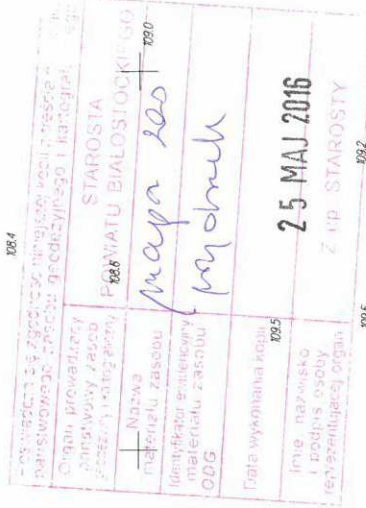 108.4
państwowego zasobu geodezyjnego i kartograf
Organ prowadzący
państwowy zasób
geodezyjny i kartograficzny
STAROSTA
POWIATU BIAŁOSTOCKIEGO
108.8
109.0
Nazwa
materiału zasobu
mapa zas
Identyfikator ewidencyjny
materiału zasobu
ODG
Data wykonania kopii
109.5
25 MAJ 2016
Imię, nazwisko
i podpis osoby
reprezentującej organ
Z up. STAROSTY
109.2
109.5